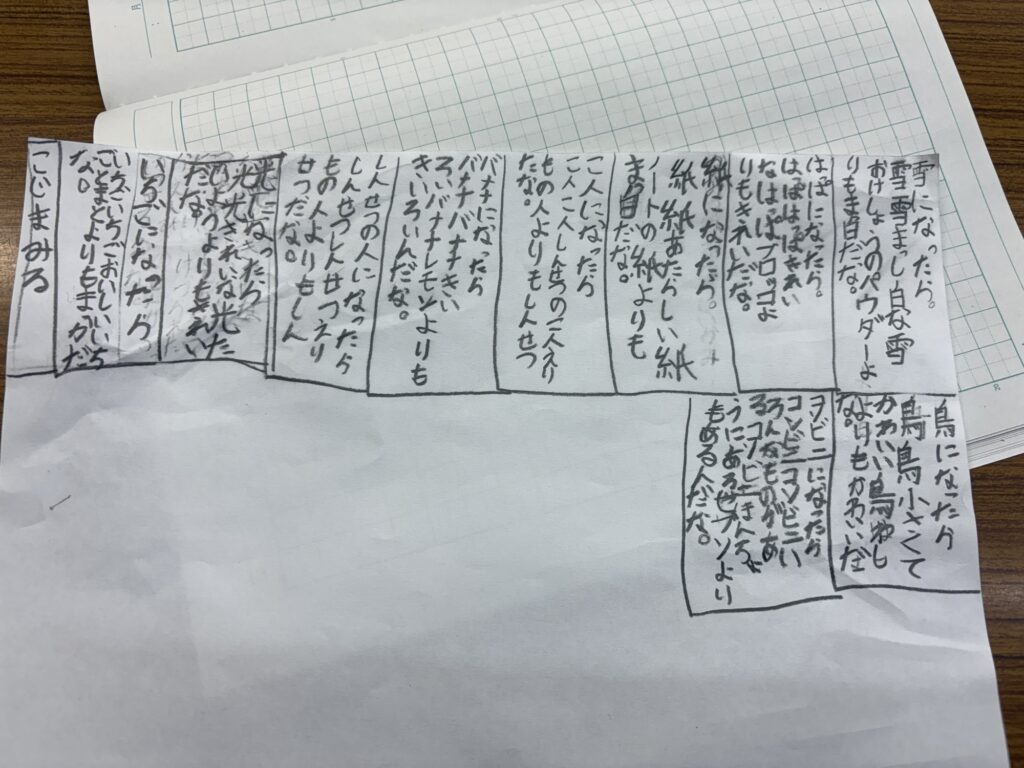 雪になったら。
雪雪まっし白な雪
おけしょうのパウダーよ
りもま白だな。
はぱになたら。
はっぱはっぱきれい
なはっぱブロッコよ
りもきれいだな。
紙になったら。
紙紙あたらしい紙
ノートの紙よりも
ま白だな。
こ人になったら
こ人こ人しん
もの人よりもしんせつ
だな。
バナナになったら
バナナバナナきい
ろいバナナレモンよりも
きいろいんだな。
しんせつの人になったら
しんせつしんせつえり
もの人よりもしん
せつだな。
光になったら
光光きれいな光た
いようよりもきれい
だな。
いちごになったら
いちごいちごおいしいいち
ごとまとよりもまっかだ
な。
こじまみろ
鳥になったら
鳥鳥小さくて
かわいい鳥
よりもかわいいだ
な。
コンビニになったら
コンビニコンビニい
ろんなものがあ
るコンビニ
つにあるセブンより
もめる人だな。